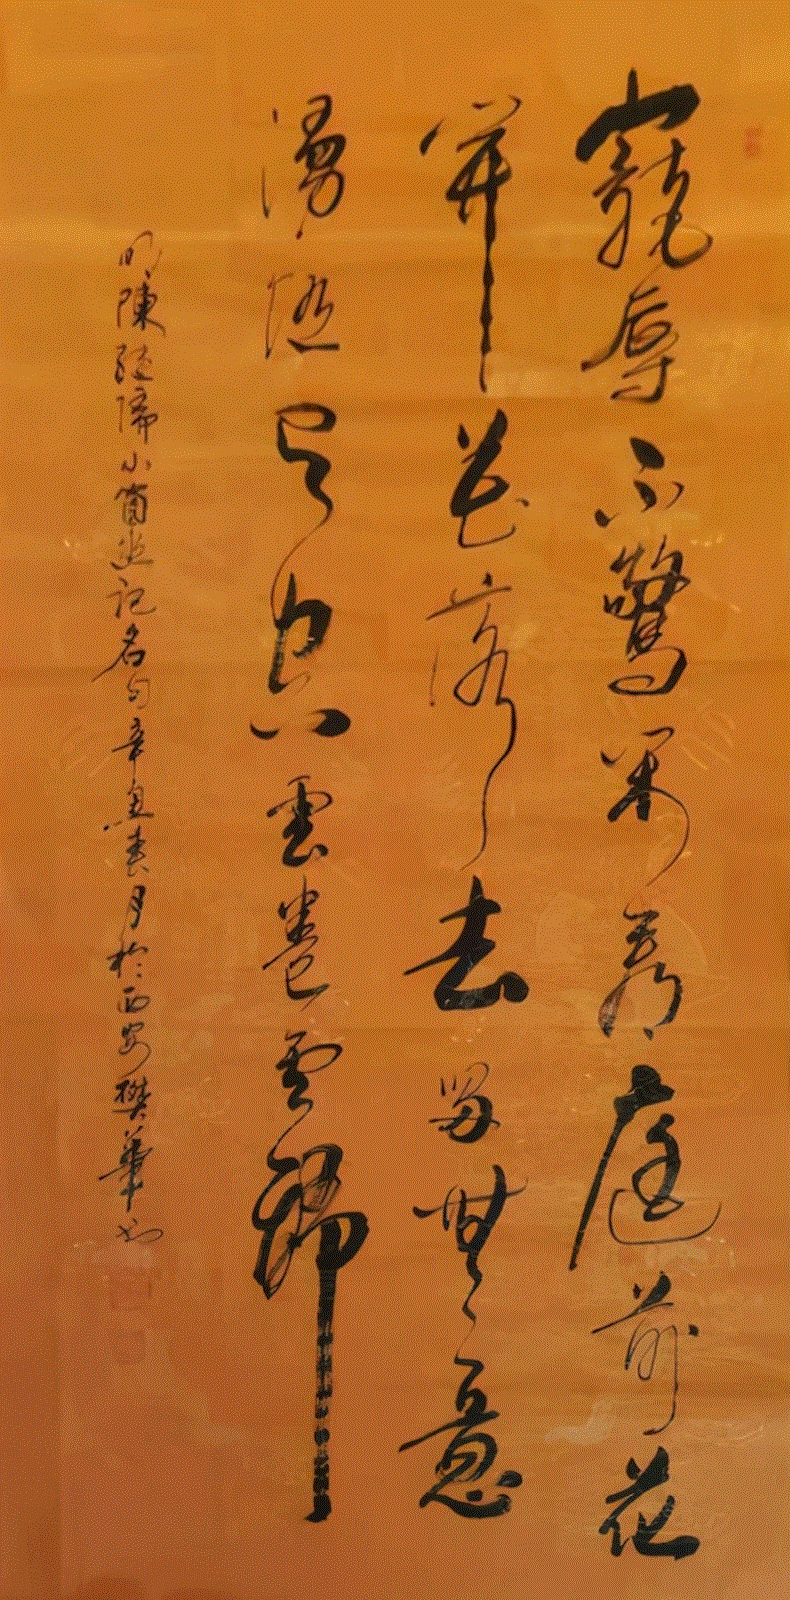 寵辱不驚閑看庭前花
開花落去留無意
漫隨雲卷雲舒
明陳繼儒小窗幽記名句辛丑春月於西安樊華書